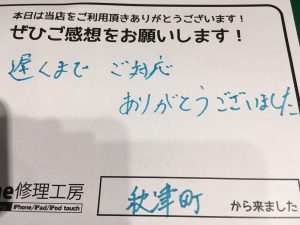 本日は当店をご利用頂きありがとうございます！
ぜひご感想をお願いします！
遅くまで ご対応
ありがとうございました
ne修理工房
iPhone/iPad/iPod touch
秋津町 から来ました